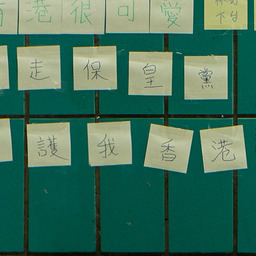 港很可愛
走保皇黨
護我香港